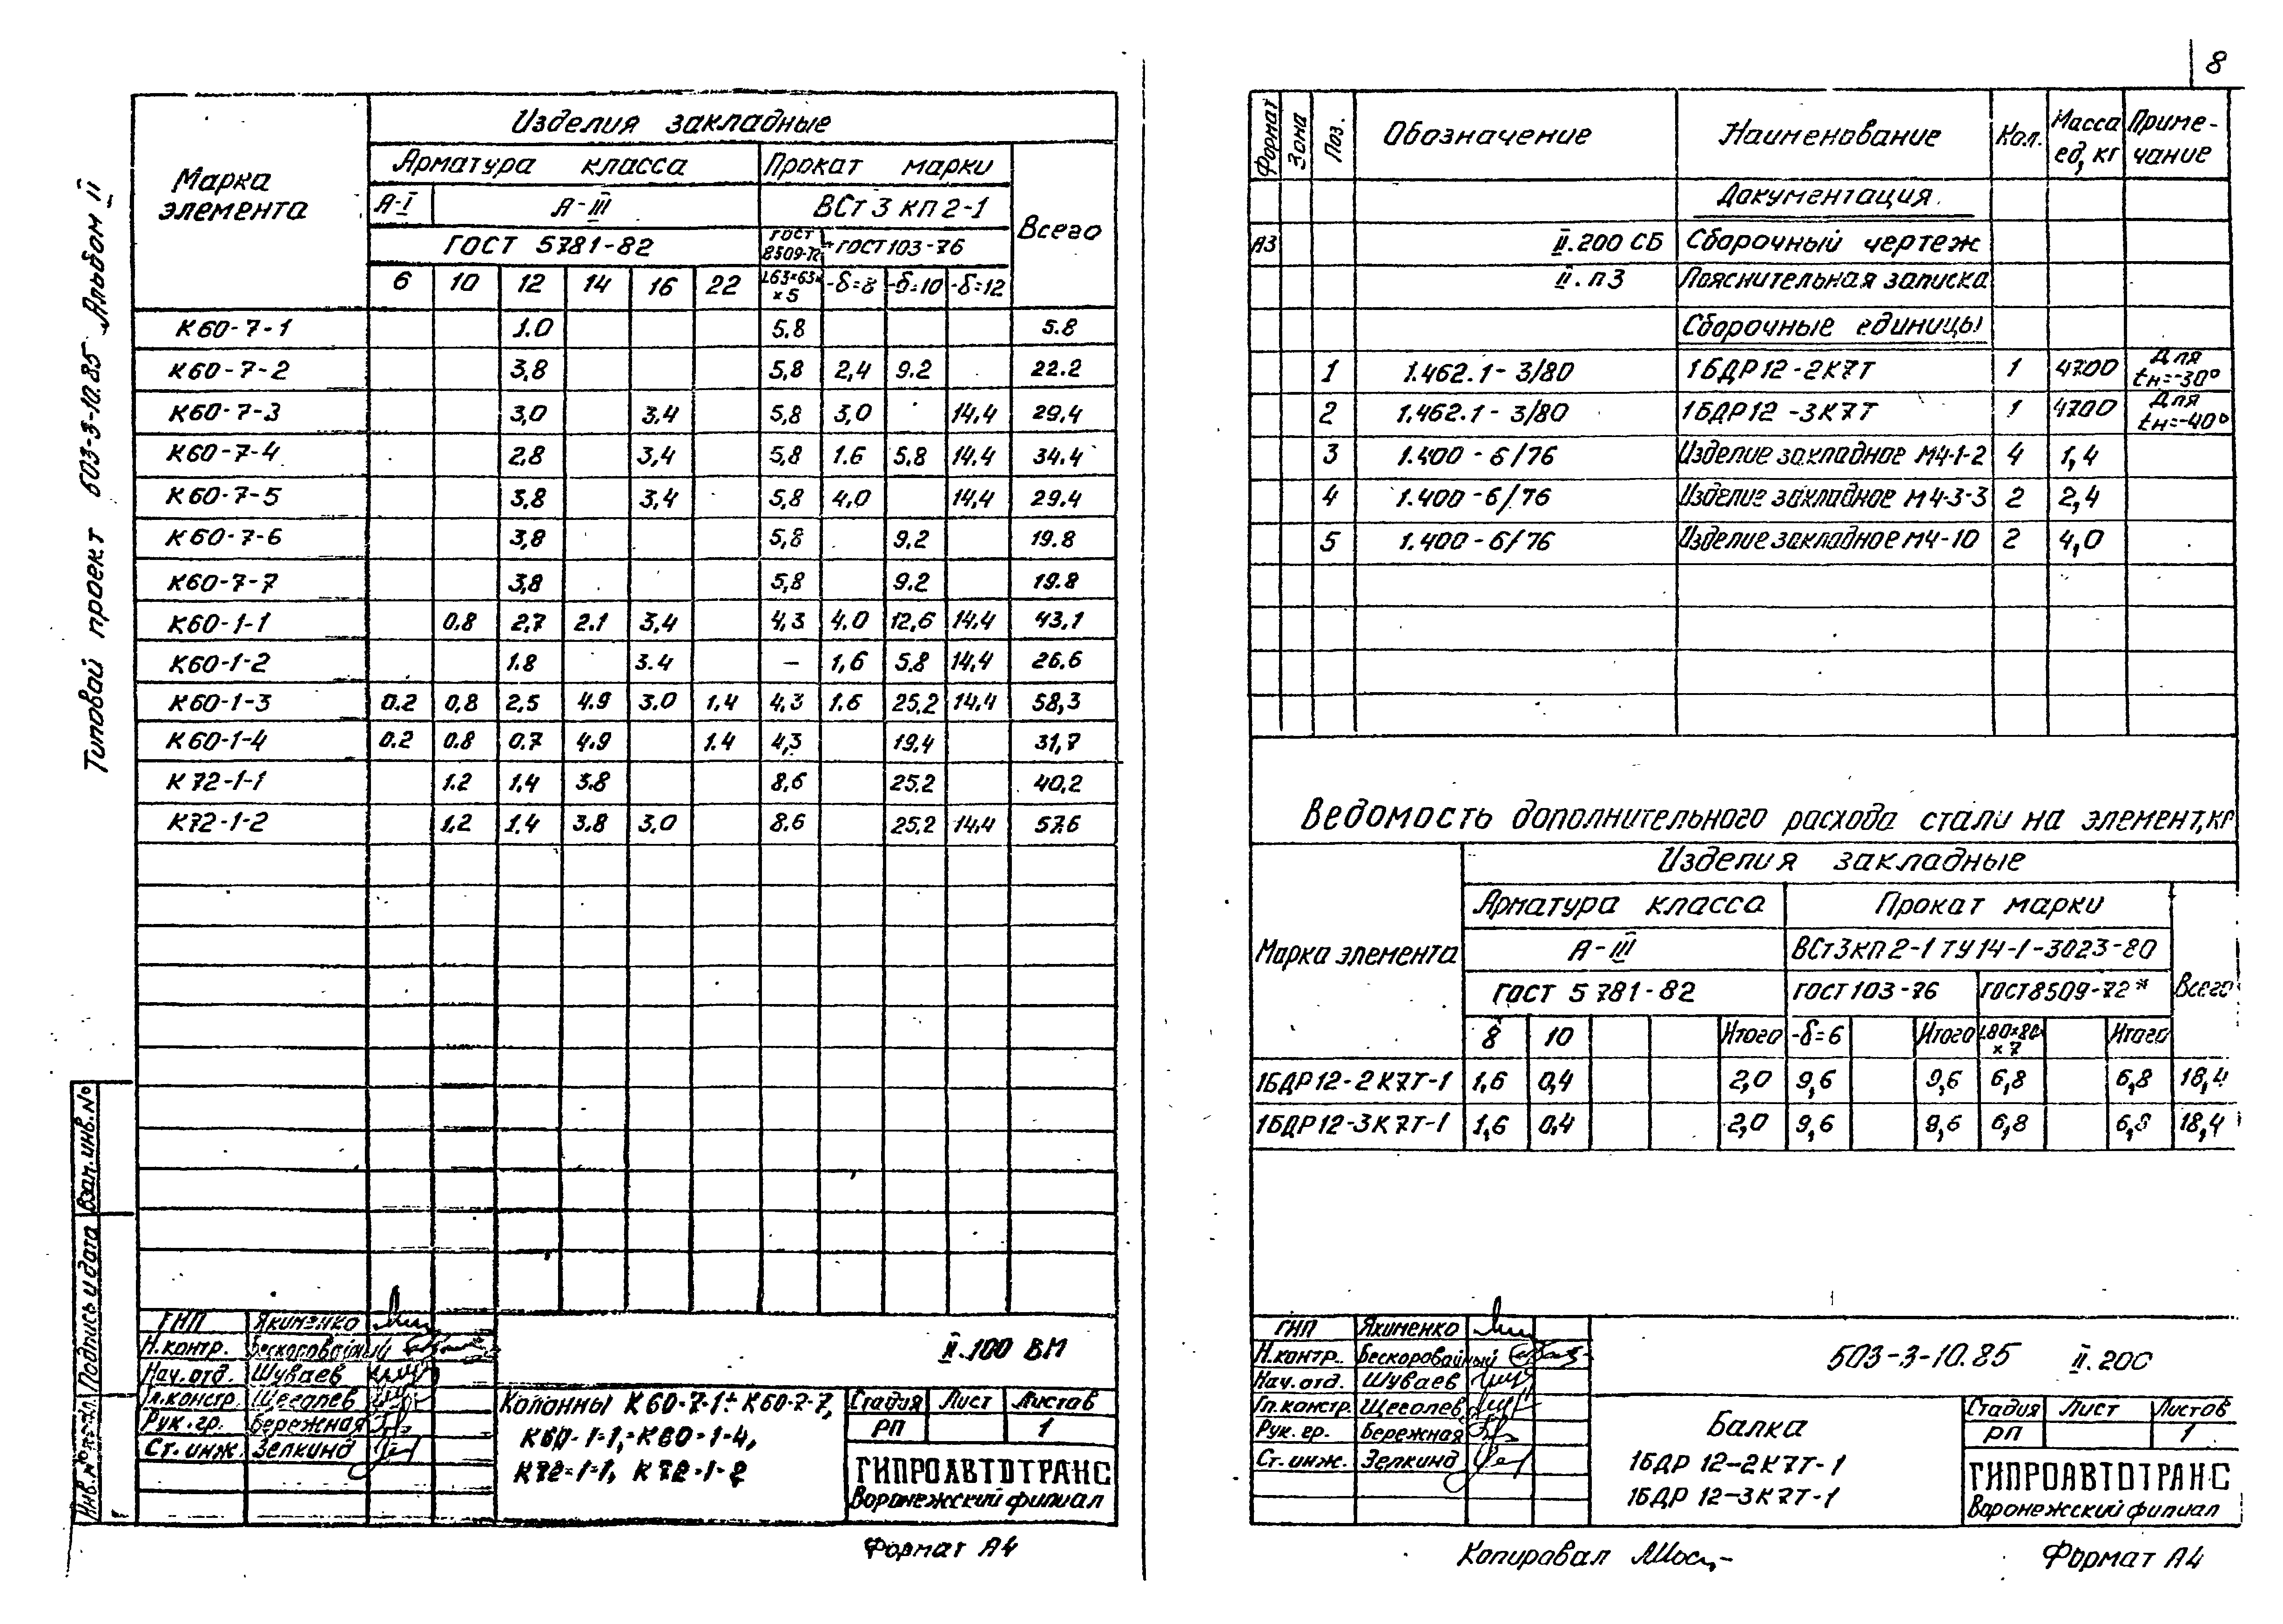 8
Типовой проект 503-3-10.85 Альбом II
Марка элемента
Изделия закладные
Арматура класса Прокат марки Всего
А-I А-III ВСт 3 кп 2-1
ГОСТ 5781-82 ГОСТ 8509-72 ГОСТ 103-76
6 10 12 14 16 22 L63×63×5 -δ=8 -δ=10 -δ=12
К60-7-1 1.0 5,8 5.8
К60-7-2 3,8 5,8 2,4 9.2 22.2
К60-7-3 3,0 3.4 5,8 3,0 14.4 29.4
К60-7-4 2,8 3,4 5,8 1.6 5.8 14.4 34.4
К60-7-5 3,8 3,4 5,8 4,0 14,4 29.4
К60-7-6 3,8 5,8 9.2 19.8
К60-7-7 3,8 5,8 9.2 19.8
К60-1-1 0.8 2,7 2.1 3,4 4,3 4.0 12,6 14,4 43,1
К60-1-2 1.8 3.4 – 1,6 5.8 14,4 26.6
К60-1-3 0.2 0,8 2,5 4.9 3.0 1.4 4,3 1.6 25,2 14,4 58,3
К60-1-4 0.2 0.8 0.7 4.9 1.4 4,3 19.4 31,7
К72-1-1 1.2 1,4 3.8 8,6 25.2 40,2
К72-1-2 1,2 1.4 3.8 3,0 8.6 25,2 14,4 57.6
Взам. инв. №
Подпись и дата
Инв. № подл.
ГИП Якименко
Н.контр. Бескоровайный
Нач. отд. Шуваев
Гл.констр. Щеголев
Рук. гр. Бережная
Ст. инж. Зелкинд
II.100 ВМ
Колонны К60-7-1÷К60-7-7,
К60-1-1,÷К60-1-4,
К72-1-1, К72-1-2
Стадия Лист Листов
РП 1
ГИПРОАВТОТРАНС
Воронежский филиал
Формат А4
Формат Зона Поз. Обозначение Наименование Кол. Масса ед, кг Примечание
Документация
А3 II.200 СБ Сборочный чертеж
II.ПЗ Пояснительная записка
Сборочные единицы
1 1.462.1-3/80 1БДР12-2К7Т 1 4700 Для tн=-30°
2 1.462.1-3/80 1БДР12-3К7Т 1 4700 Для tн=-40°
3 1.400-6/76 Изделие закладное М4-1-2 4 1,4
4 1.400-6/76 Изделие закладное М4-3-3 2 2,4
5 1.400-6/76 Изделие закладное М4-10 2 4,0
Ведомость дополнительного расхода стали на элемент, кг
Марка элемента
Изделия закладные
Арматура класса Прокат марки Всего
А-III ВСт3кп2-1 ТУ14-1-3023-80
ГОСТ 5781-82 ГОСТ 103-76 ГОСТ8509-72*
8 10 Итого -δ=6 Итого L80×80×7 Итого
1БДР12-2К7Т-1 1,6 0,4 2,0 9,6 9,6 6,8 6,8 18,4
1БДР12-3К7Т-1 1,6 0,4 2,0 9,6 9,6 6,8 6,8 18,4
ГИП Якименко
Н.контр. Бескоровайный
Нач. отд. Шуваев
Гл. констр. Щеголев
Рук. гр. Бережная
Ст. инж. Зелкинд
503-3-10.85 II.200
Балка
1БДР 12-2К7Т-1
1БДР 12-3К7Т-1
Стадия Лист Листов
РП 1
ГИПРОАВТОТРАНС
Воронежский филиал
Копировал
Формат А4